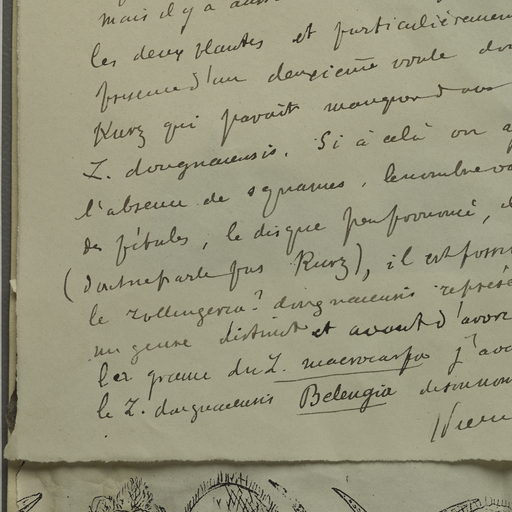 mais il y a aussi
les deux plantes et particulièrement
présence d'un deuxième ovule dans
Kurz qui paraît manquer dans
Z. dongnaiensis. Si à cela on
l'absence de squames, le nombre
des pétales, le disque peu prononcé,
(dont ne parle pas Kurz), il est
le Zollingeria? dongnaiensis représe
un genre distinct et avant d'avoir
les graines du Z. macrocarpa j'avais
le Z. dongnaiensis Belengia
Pierre